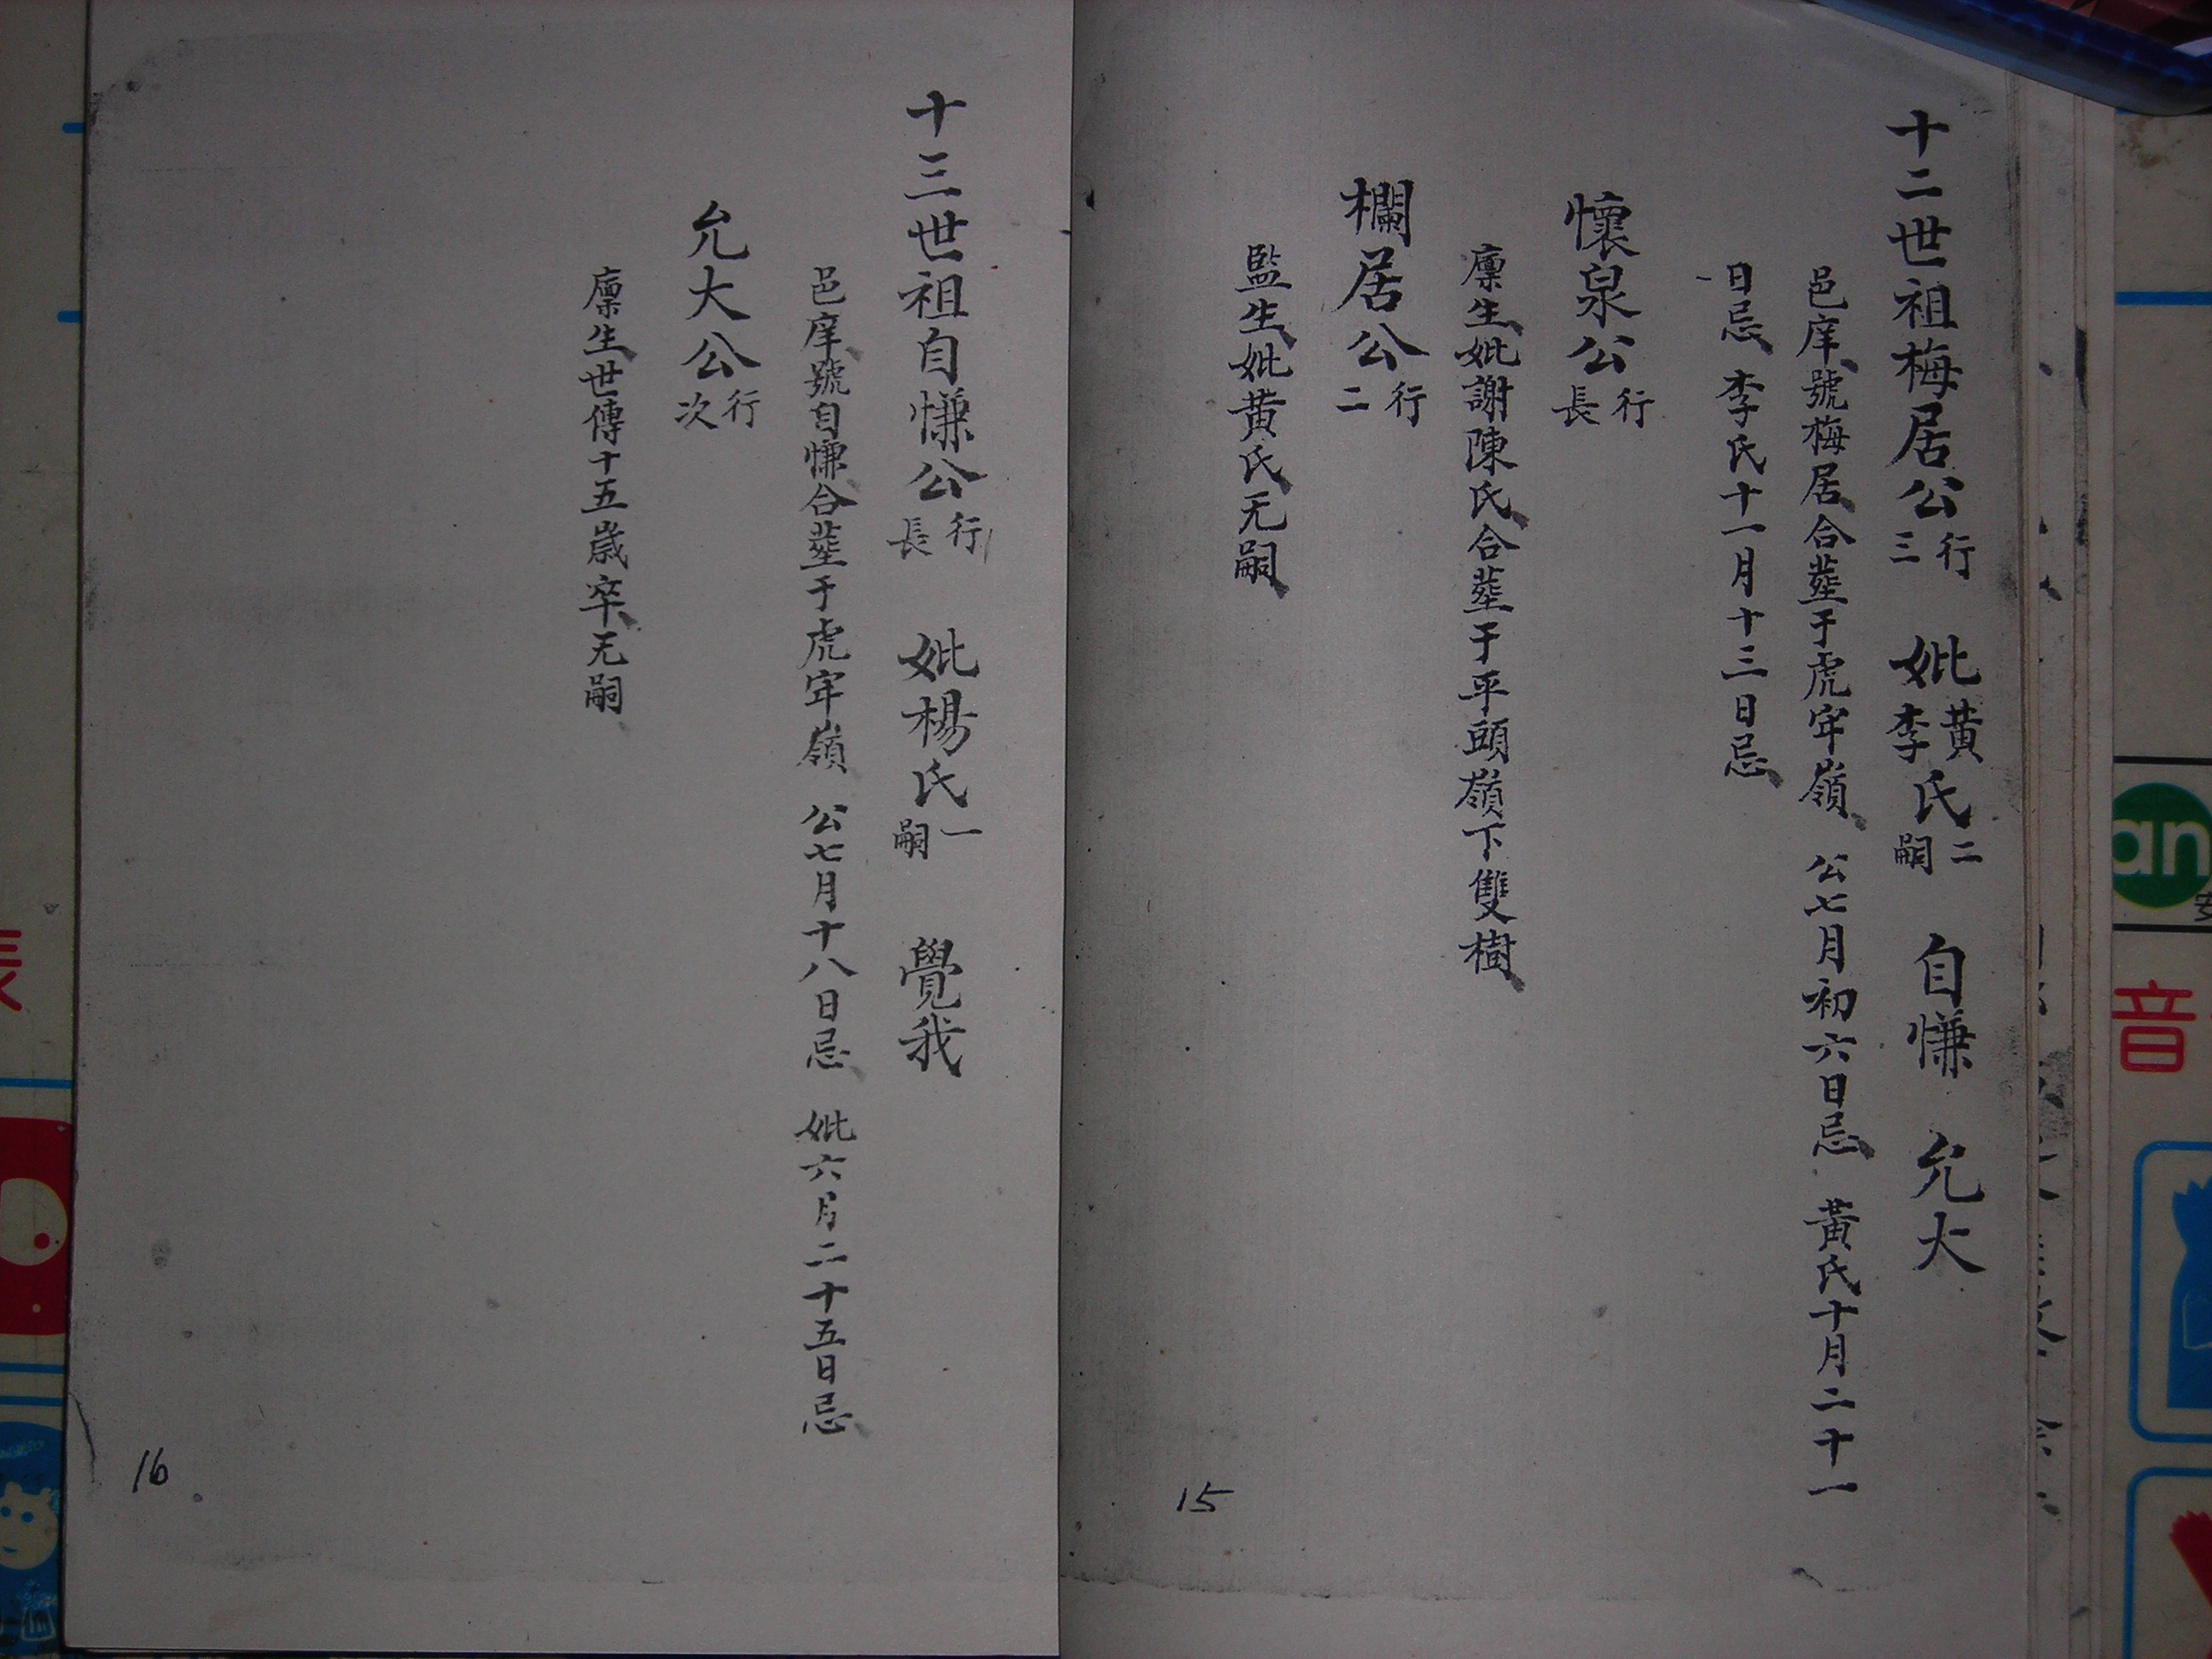 十二世祖梅居公行三 妣黃李氏二嗣 自慊 允大
邑庠號梅居合塟于虎牢嶺 公七月初六日忌 黃氏十月二十一
日忌 李氏十一月十三日忌
懷泉公行長
廪生妣謝陳氏合塟于平頭嶺下雙樹
欄居公行二
監生妣黃氏无嗣
15
十三世祖自慊公行長 妣楊氏一嗣 覺我
邑庠號自慊合塟于虎牢嶺 公七月十八日忌 妣六月二十五日忌
允大公行次
廪生世傳十五歲卒无嗣
16
an
音